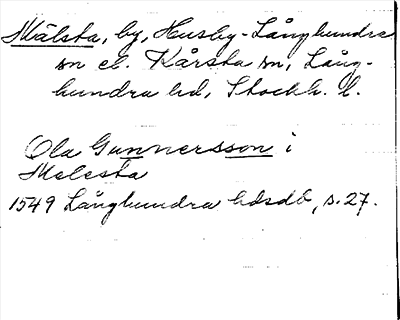 Mälsta, by, Husby-Långhundra
sn el. Kårsta sn, Lång-
hundra hd, Stockh. l.
Ola Gunnersson i
Malesta
1549 Långhundra hdsdb, s. 27.